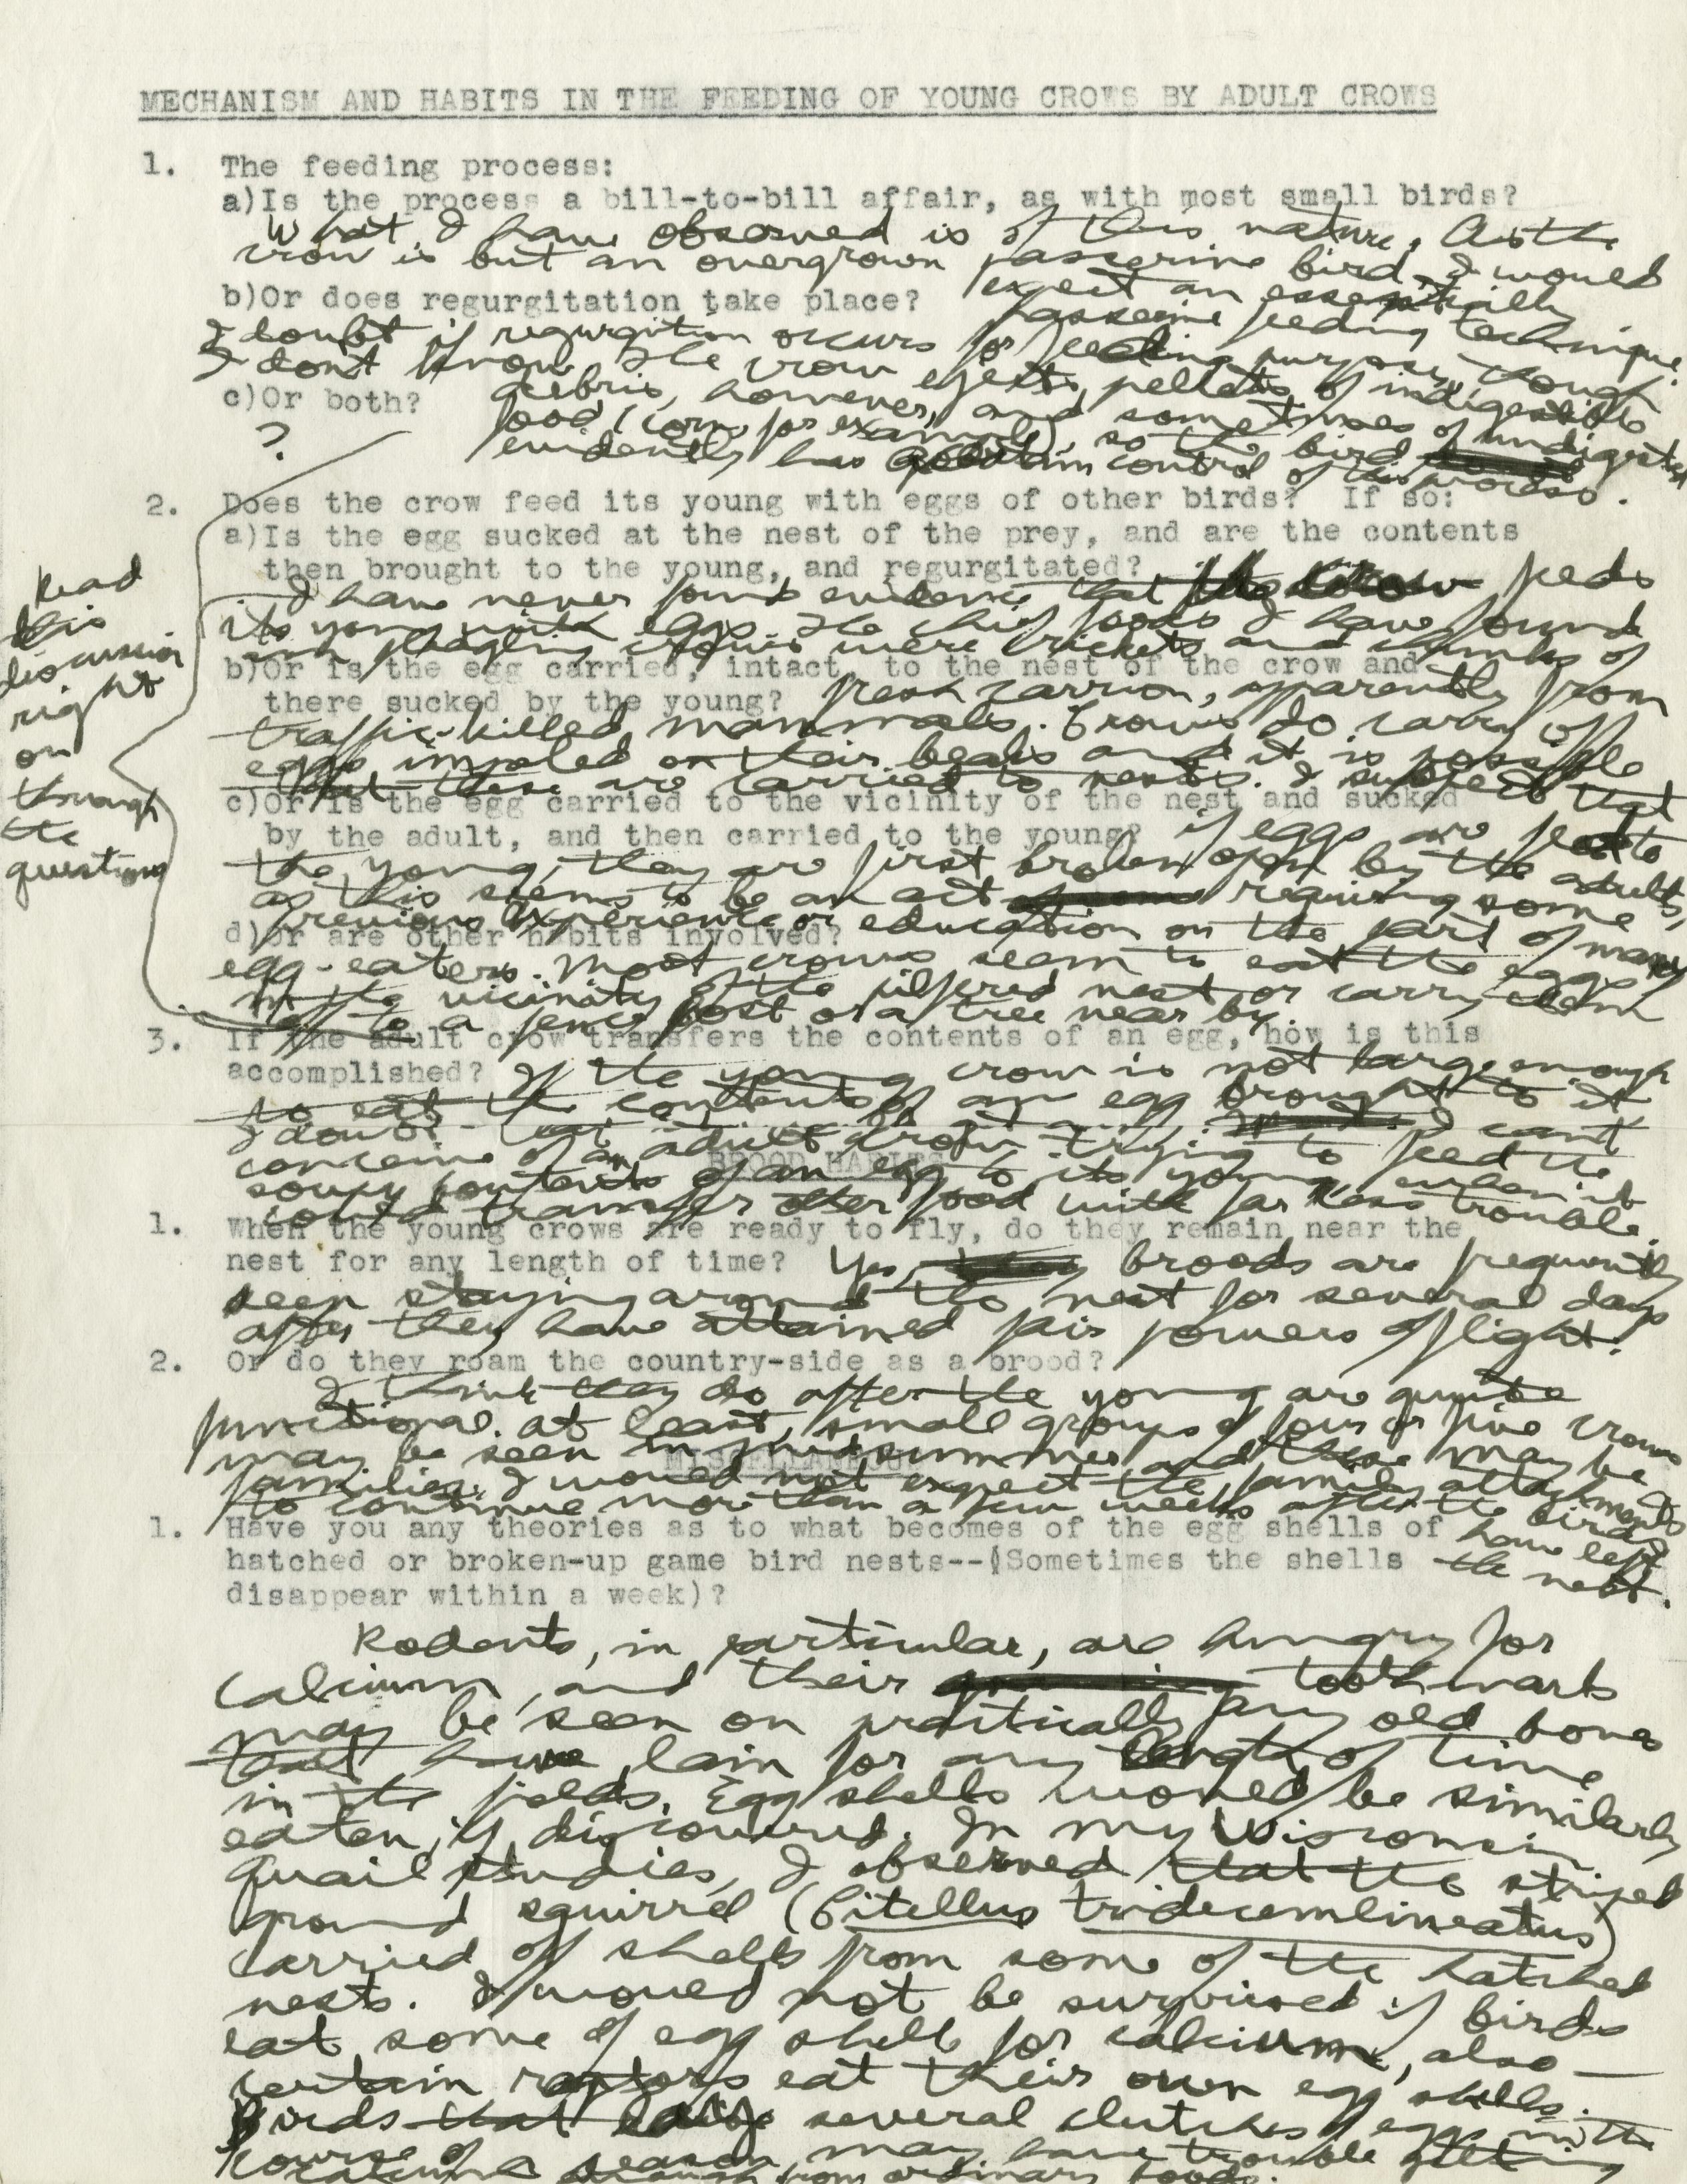 MECHANISM AND HABITS IN THE FEEDING OF YOUNG CROWS BY ADULT CROWS
1. The feeding process:
a)Is the process a bill-to-bill affair, as with most small birds?
What I have observed is of this nature. As the
crow is but an overgrown passerine bird, I would
expect an essentially
passerine feeding technique.
b)Or does regurgitation take place?
I doubt if regurgition occurs for feeding purposes, though
I don't know. The crow ejects pellets of indigestible
debris, however, and sometimes of undigested
food (corn, for example), so the bird
evidently has control of this process.
c)Or both?
?
2. Does the crow feed its young with eggs of other birds? If so:
a)Is the egg sucked at the nest of the prey, and are the contents
then brought to the young, and regurgitated?
Read
this
discussion
right
on
through
the
questions
I have never found evidence that the crow feeds
its young with eggs. The chief foods I have found
in fledgling crows were crickets and chunks of
b)Or is the egg carried, intact, to the nest of the crow and
there sucked by the young?
fresh carrion, apparently from
traffic-killed mammals. Crows do carry off
eggs impaled on their beaks and it is possible
that these are carried to nests. I suspect that
c)Or is the egg carried to the vicinity of the nest and sucked
by the adult, and then carried to the young?
if eggs are fed to
the young, they are first broken open by the adults,
as this seems to be an act requiring some
previous experience or education on the part of many
d)Or are other habits involved?
egg-eaters. Most crows seem to eat the eggs
in the vicinity of the pilfered nest or carry them
off to a fence post or a tree near by.
3. If the adult crow transfers the contents of an egg, how is this
accomplished?
If the young crow is not large enough
to eat the contents of an egg brought to it
I doubt that I can't
conceive of an adult crow trying to feed the
soupy contents of an egg to its young when it
could transfer other food with far less trouble.
BROOD HABITS
1. When the young crows are ready to fly, do they remain near the
nest for any length of time?
Yes, broods are frequently
seen staying around the nest for several days
after they have attained fair powers of flight.
2. Or do they roam the country-side as a brood?
I think they do after the young are quite
functional. At least, small groups of four or five crows
may be seen in midsummer and these may be
families. I would not expect the family attachments
to continue more than a few weeks after the birds
have left
the nest.
MISCELLANEOUS
1. Have you any theories as to what becomes of the egg shells of
hatched or broken-up game bird nests--(Sometimes the shells
disappear within a week)?
Rodents, in particular, are hungry for
calcium, and their tooth marks
may be seen on practically any old bones
that have lain for any length of time
in the fields. Egg shells would be similarly
eaten, if discovered. In my Wisconsin
quail studies, I observed that the striped
ground squirrel (Citellus tridecemlineatus)
carried off shells from some of the hatched
nests. I would not be surprised if birds
eat some of egg shell for calcium, also —
certain raptors eat their own egg shells.
Birds that several clutches of eggs in the
course of a season may have trouble getting
calcium enough from ordinary foods.